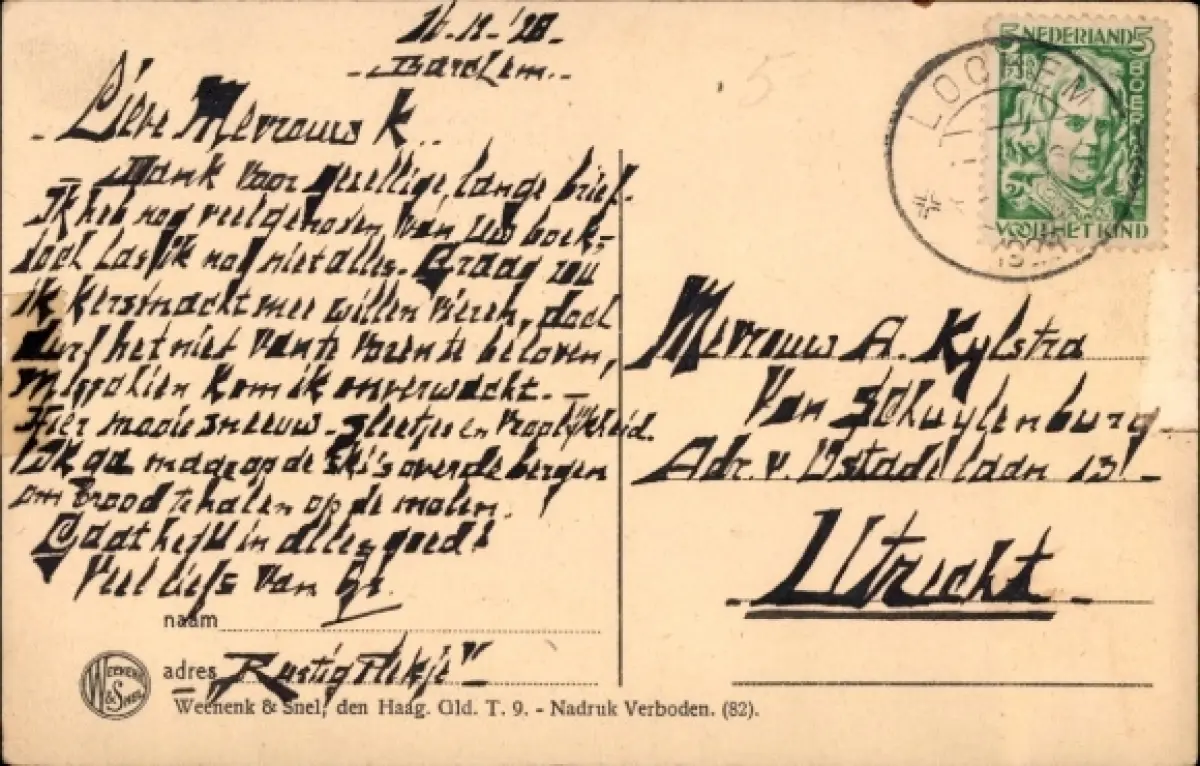 16-12-'28-
- Barchem. -
- Lieve Mevrouw K..
- Dank voor gezellige, lange brief.
Ik heb nog veel genoten van Uw boek -
doch las ik nog niet alles. Graag zou
ik Kersnacht mee willen vieren, doch
durf het niet van te voren te beloven,
Misschien kom ik onverwacht. -
Hier mooie sneeuw - sleetjes en vroolijkheid.
Ik ga op de ski's over de bergen
om brood te halen op de molen.
Gaat het U in alles goed?
Veel liefs van
naam
adres "Rustig Plekje"
WEENENK & SNEL
Weenenk & Snel, den Haag. Gld. T. 9. - Nadruk Verboden. (82).
5 NEDERLAND 5
VOOR HET KIND
LOCHEM
Mevrouw A. Kylstra
van Schuylenburg -
Adr. v. Ostade laan 13 -
- Utrecht -